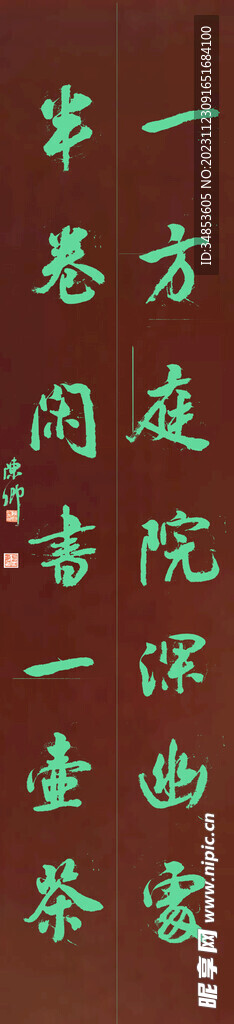 一方庭院深幽處
半卷閑書一壺茶
陳卿
ID:34853605 NO:20231123091651684100
昵享网 www.nipic.cn